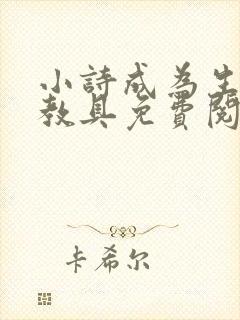 小詩成為生
教具免費閱
卡希尔